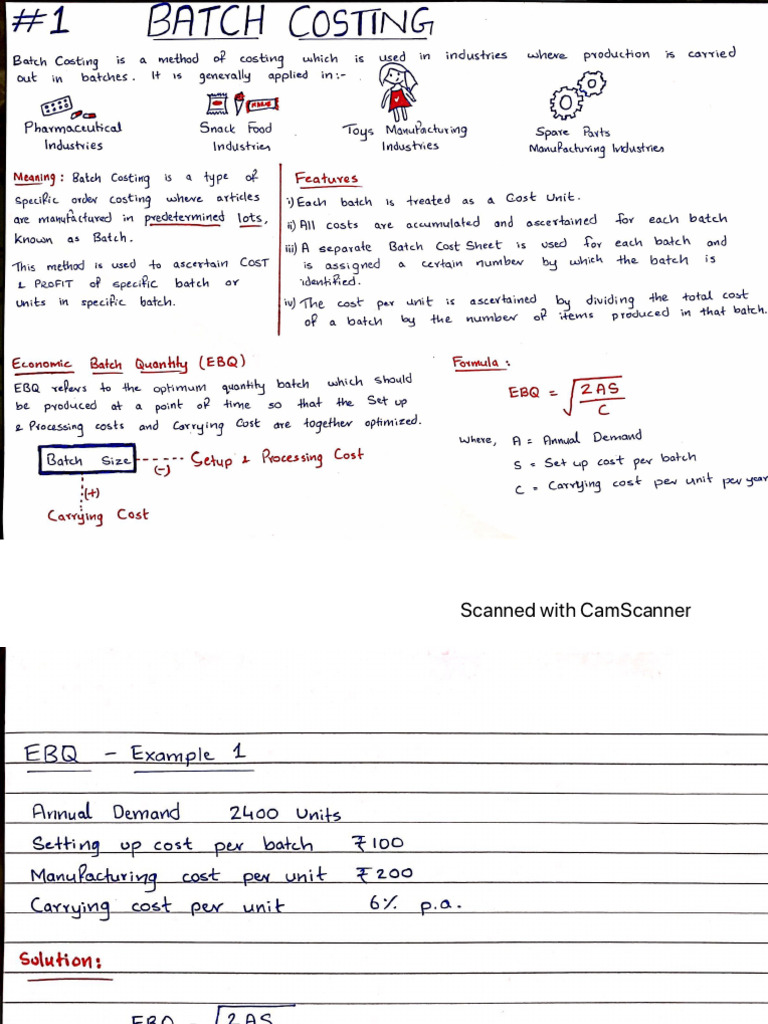 #1 BATCH COSTING
Batch Costing is a method of costing which is used in industries where production is carried
out in batches. It is generally applied in:-
Pharmaceutical
Industries
Snack Food
Industries
Toys Manufacturing
Industries
Spare Parts
Manufacturing Industries
Meaning: Batch Costing is a type of
specific order costing where articles
are manufactured in predetermined lots,
known as Batch.
This method is used to ascertain COST
& PROFIT of specific batch or
units in specific batch.
Features
i) Each batch is treated as a Cost Unit.
ii) All costs are accumulated and ascertained for each batch
iii) A separate Batch Cost Sheet is used for each batch and
is assigned a certain number by which the batch is
identified.
iv) The cost per unit is ascertained by dividing the total cost
of a batch by the number of items produced in that batch.
Economic Batch Quantity (EBQ)
EBQ refers to the optimum quantity batch which should
be produced at a point of time so that the Set up
& Processing costs and Carrying Cost are together optimized.
Batch Size ------ Setup & Processing Cost
(-)
(+)
Carrying Cost
Formula:
EBQ = √2AS/C
where, A = Annual Demand
S = Set up cost per batch
C = Carrying cost per unit per year
Scanned with CamScanner
EBQ - Example 1
Annual Demand 2400 Units
Setting up cost per batch ₹100
Manufacturing cost per unit ₹200
Carrying cost per unit 6% p.a.
Solution:
EBQ = √2AS